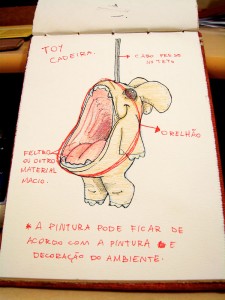 TOY
CADEIRA.
CABO PRESO
NO TETO
ORELHÃO
FELTRO
OU OUTRO
MATERIAL
MACIO.
* A PINTURA PODE FICAR DE
ACORDO COM A PINTURA E
DECORAÇÃO DO AMBIENTE.